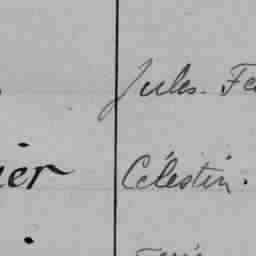 Jules. Fe
ier Célestin.